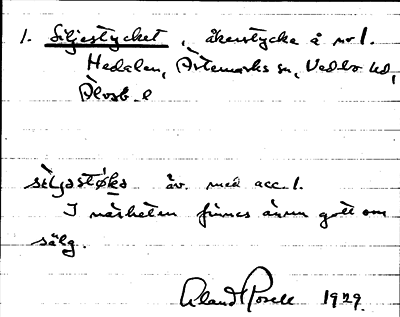 1. Siljestycket, åkerstycke å nr 1.
Hedalen, Ärtemarks sn, Vedbo hd,
Älvsb. l
säljastøkə äv. med acc. 1.
I närheten finnes även gott om
sälg.
Roselt 1929.